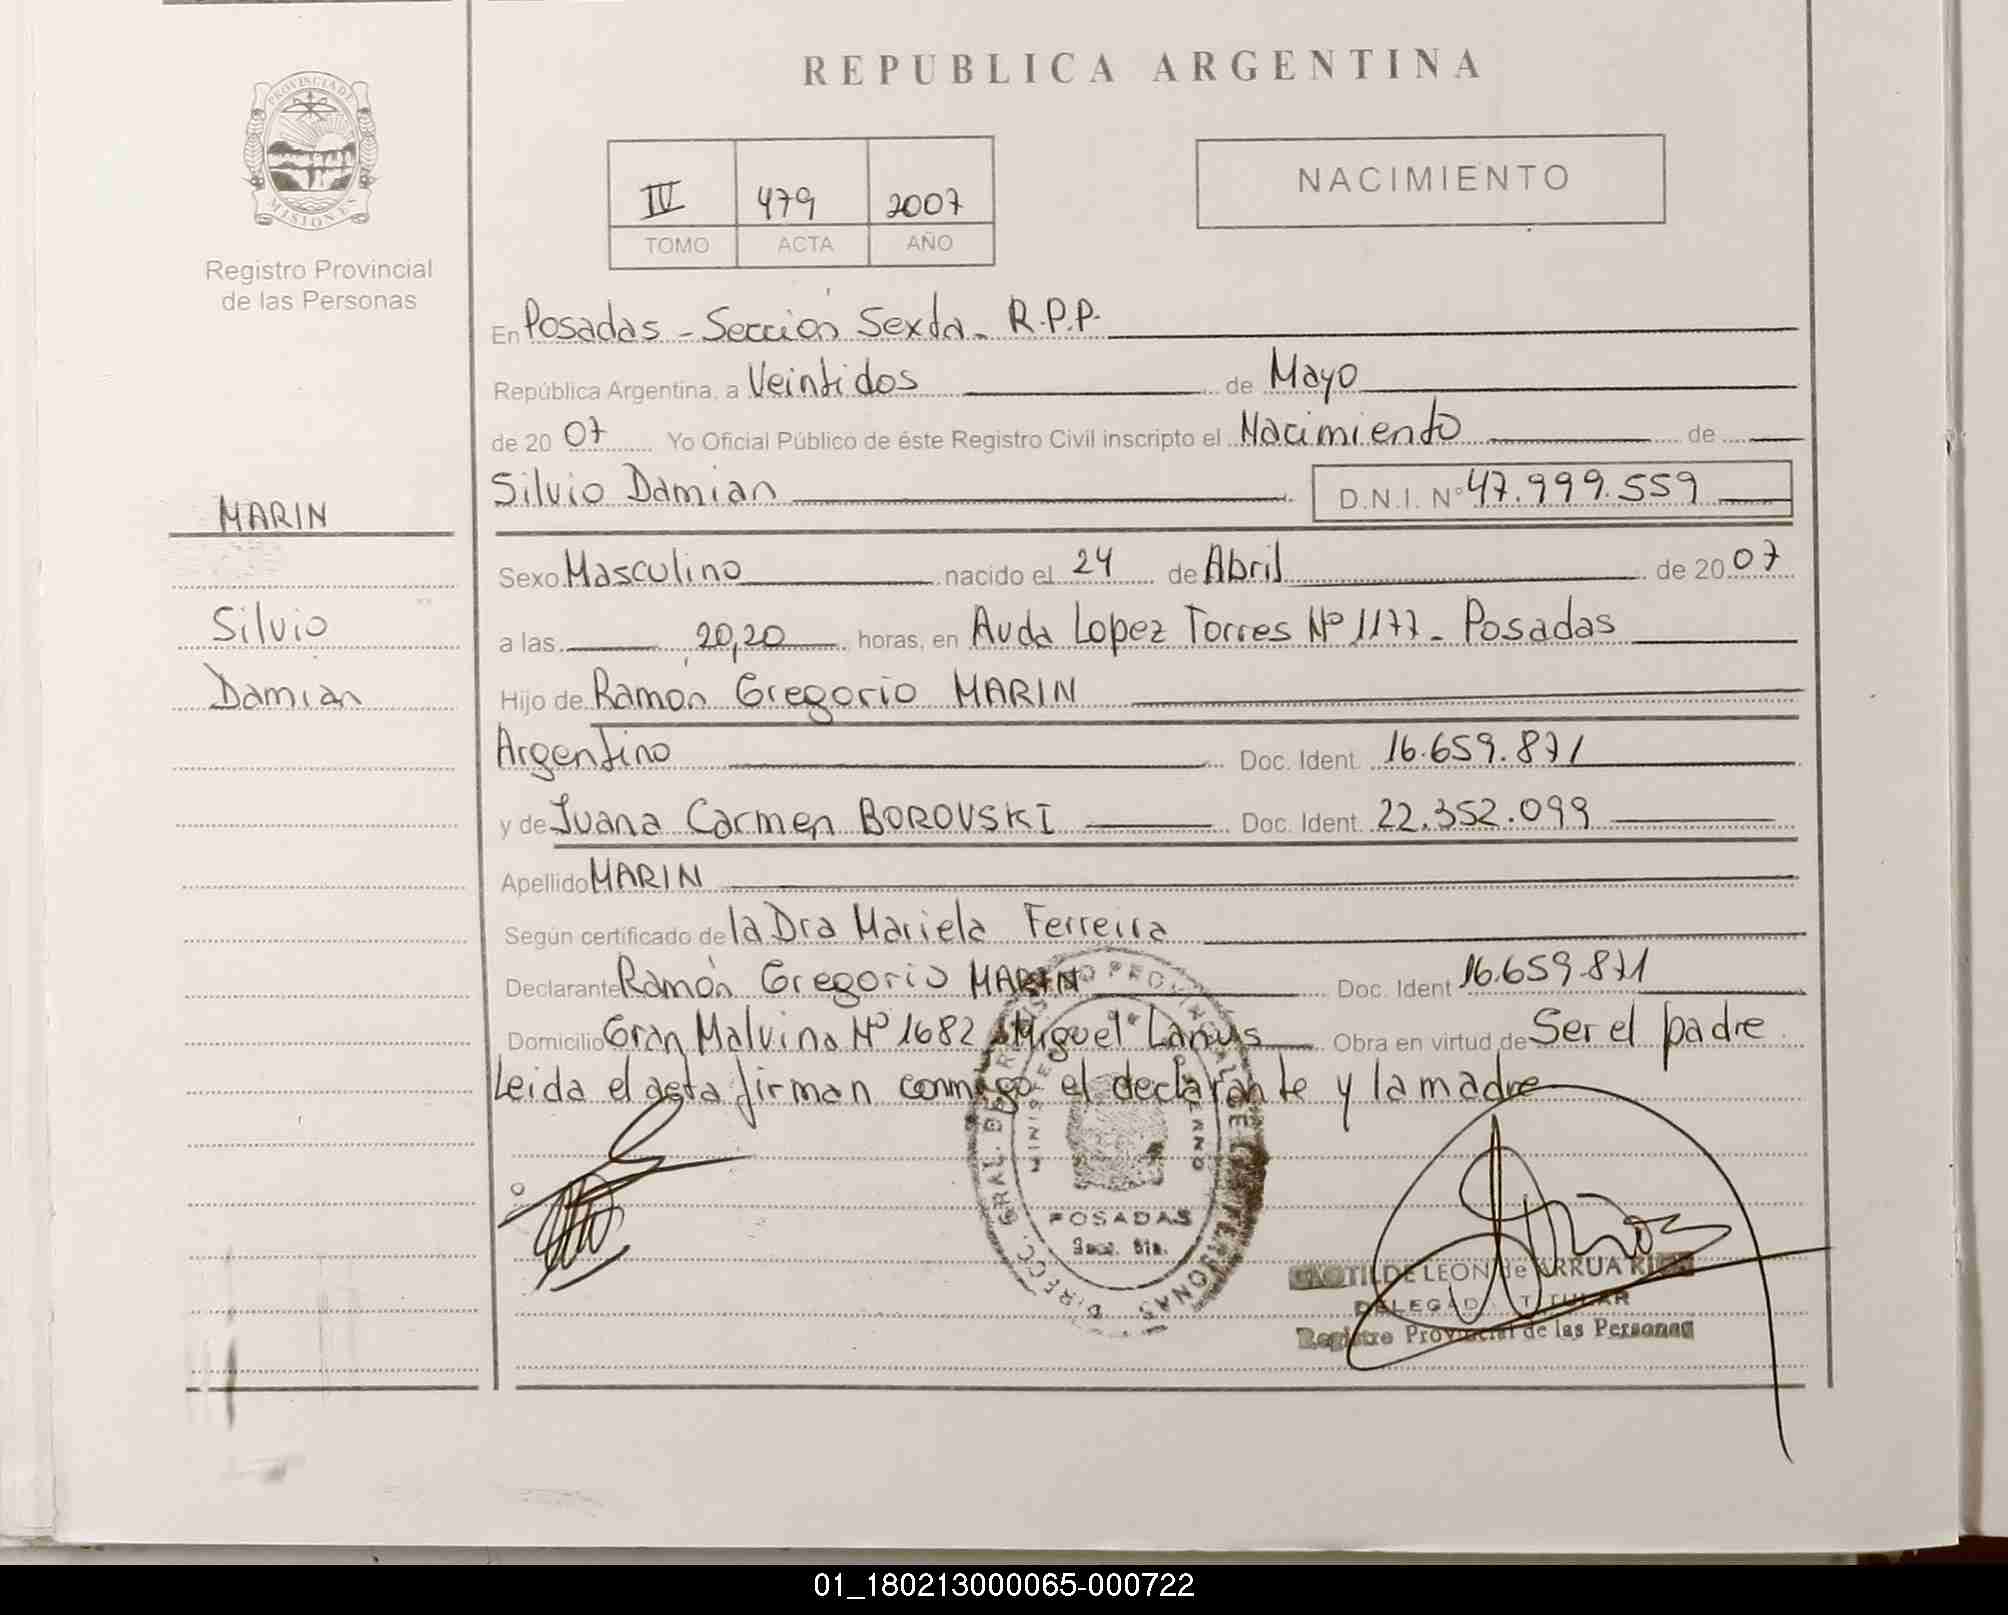 REPUBLICA ARGENTINA
PROVINCIA DE MISIONES
Registro Provincial
de las Personas
IV 479 2007
TOMO ACTA AÑO
NACIMIENTO
En Posadas - Sección Sexta - R.P.P.
República Argentina, a Veintidos de Mayo
de 2007 Yo Oficial Público de éste Registro Civil inscripto el Nacimiento de
Silvio Damian D.N.I. Nº 47.999.559
MARIN
Sexo Masculino nacido el 24 de Abril de 2007
Silvio
a las 20,20 horas, en Avda Lopez Torres Nº 1177 - Posadas
Damian
Hijo de Ramón Gregorio MARIN
Argentino Doc. Ident. 16.659.871
y de Juana Carmen BOROVSKI Doc. Ident. 22.352.099
Apellido MARIN
Según certificado de la Dra Mariela Ferreira
Declarante Ramón Gregorio MARIN Doc. Ident 16.659.871
Domicilio Gran Malvina Nº 1682 Miguel Lanus Obra en virtud de Ser el padre
Leida el acta firman conmigo el declarante y la madre
POSADAS
CLOTILDE LEON de ARRUA RIOS
DELEGADA TITULAR
Registro Provincial de las Personas
01_180213000065-000722